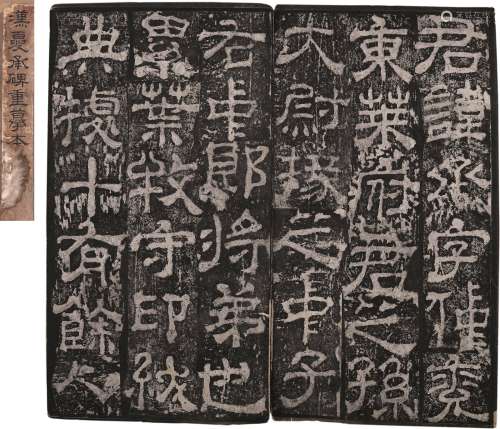 君諱承字仲兗
東萊府君之孫
大尉掾之中子
右中郎將弟也
累葉牧守印紱
典據十有餘人
漢夏承碑重摹本